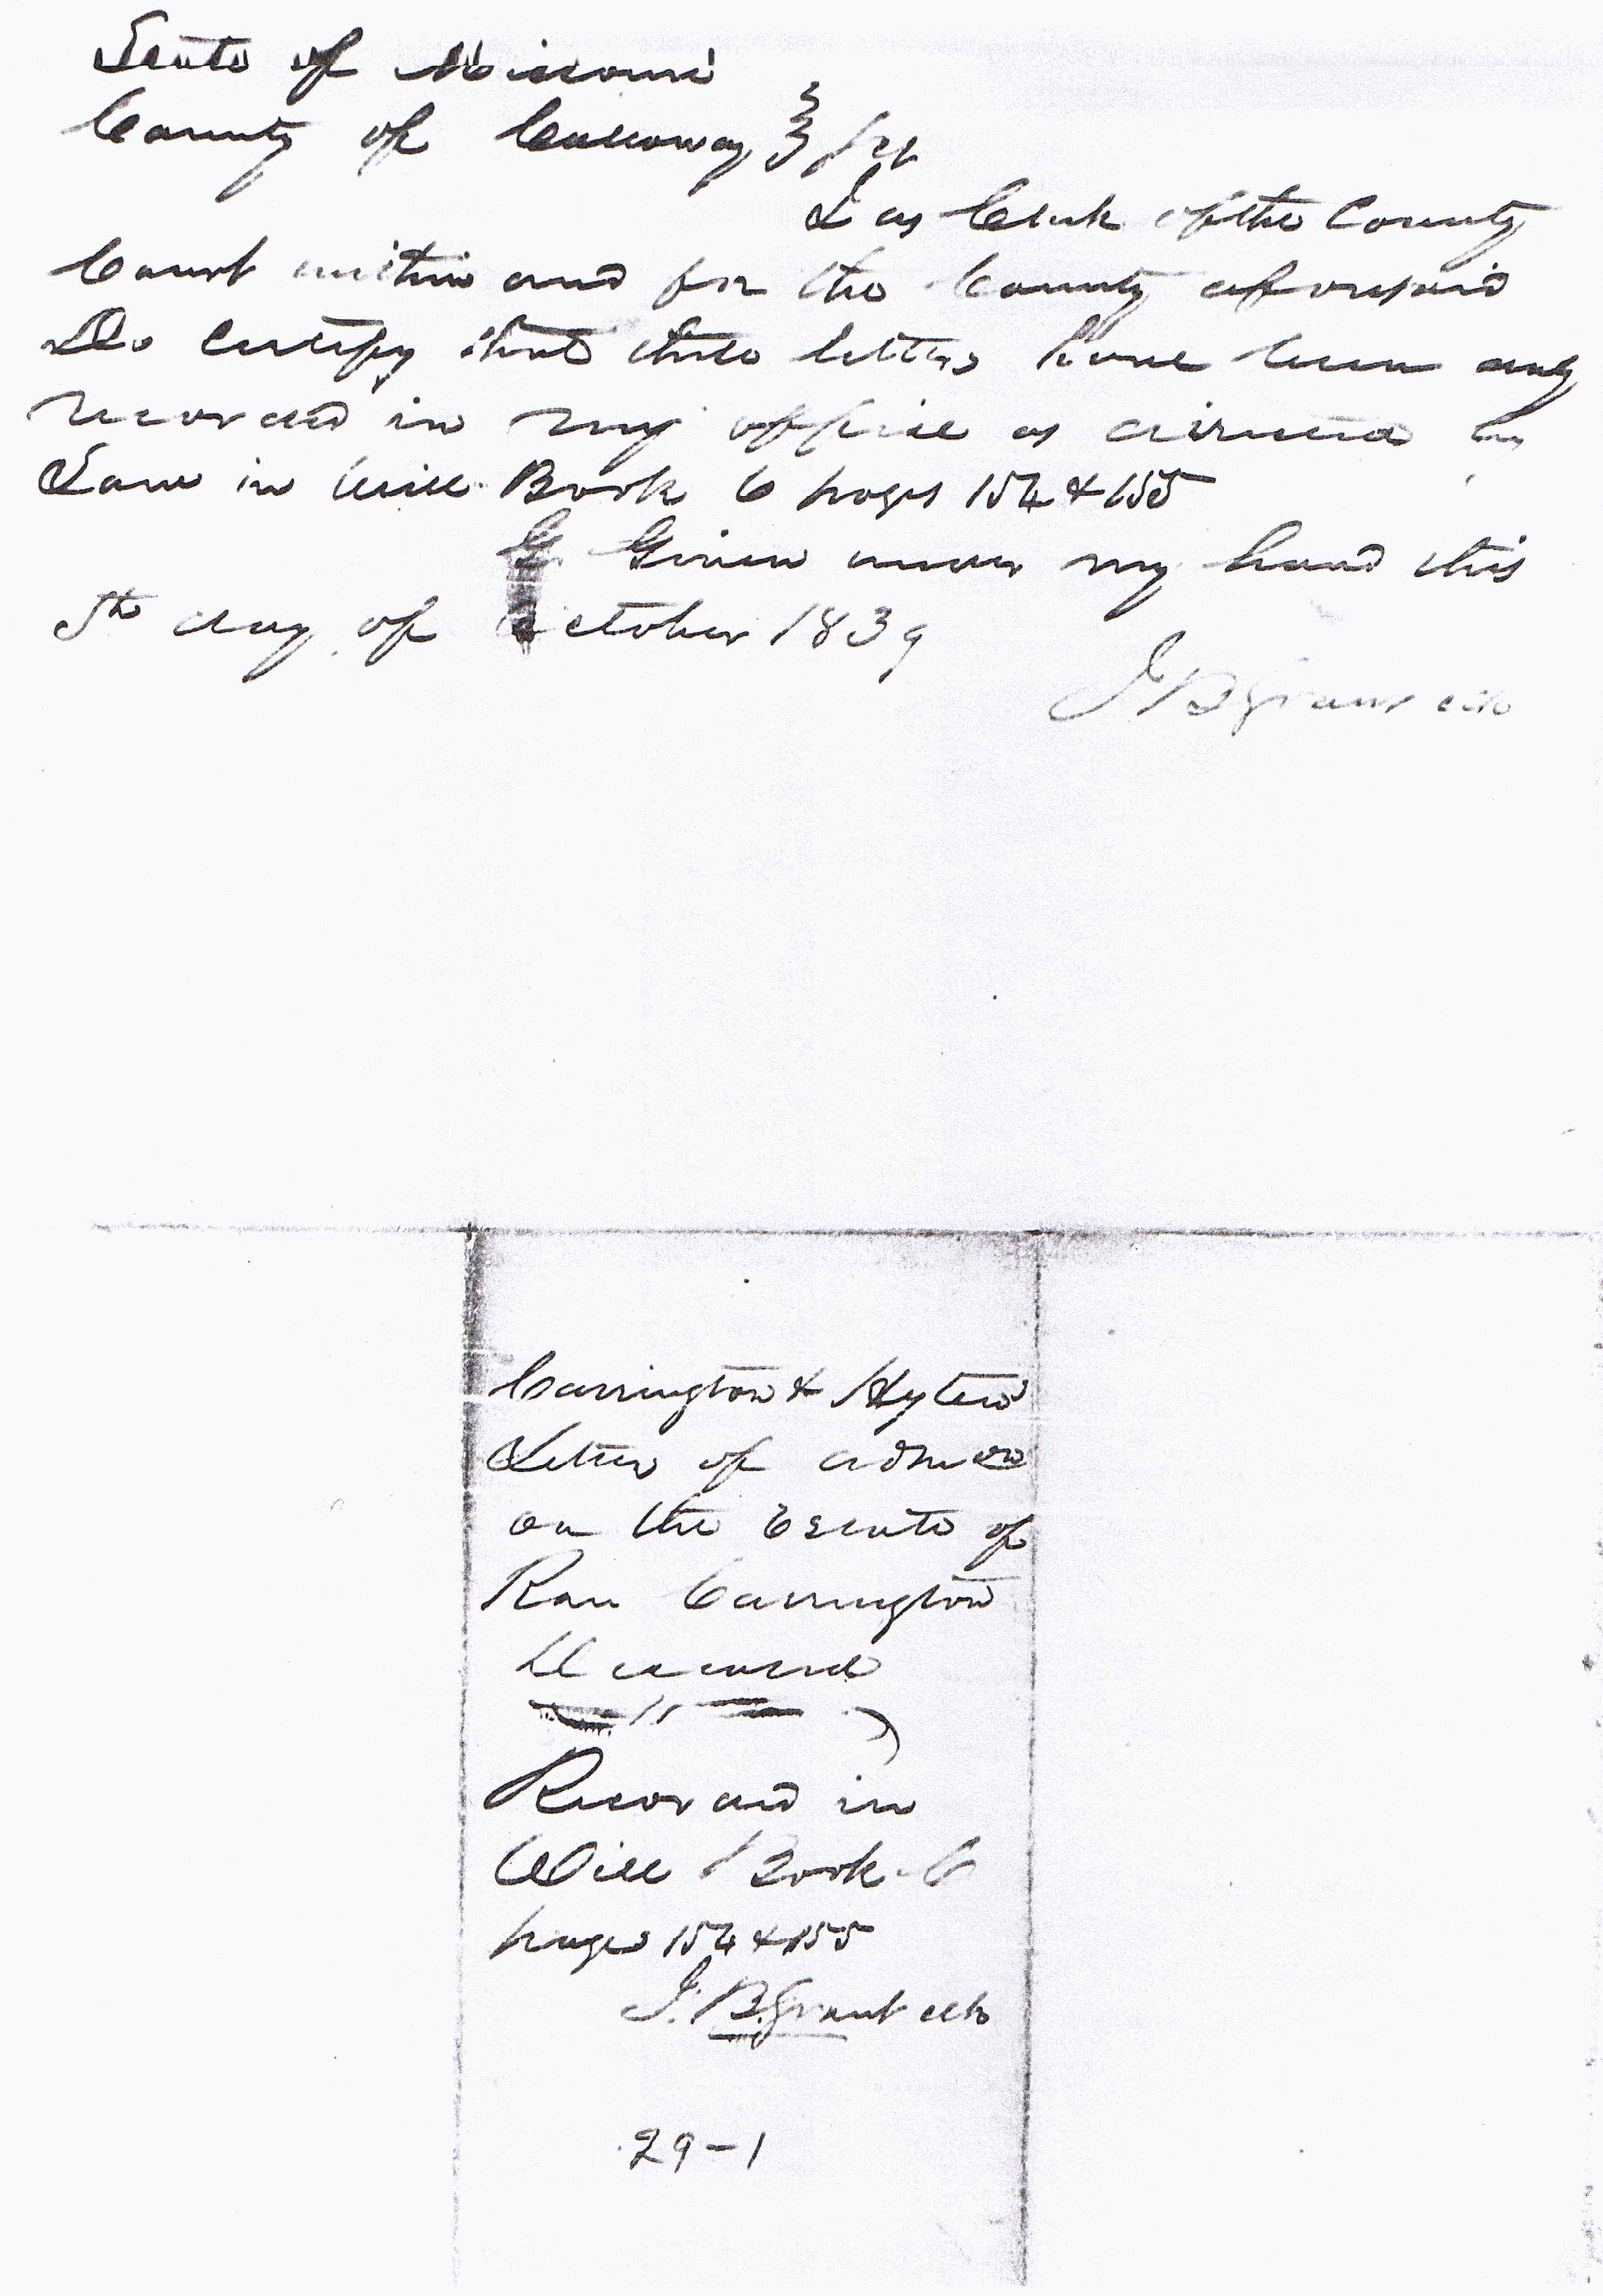 State of Missouri
County of Callaway } Sct
I as Clerk of the County
Court within and for the County aforesaid
Do Certify that these letters have been duly
recorded in my office as directed by
Law in Will Book C pages 154 & 155
Given under my hand this
5th day of October 1839
J B Grant clk
Carrington & Hyten
Letters of admon
on the Estate of
Ran Carrington
Deceased
Recorded in
Will Book C
pages 154 & 155
J. B. Grant clk
29-1